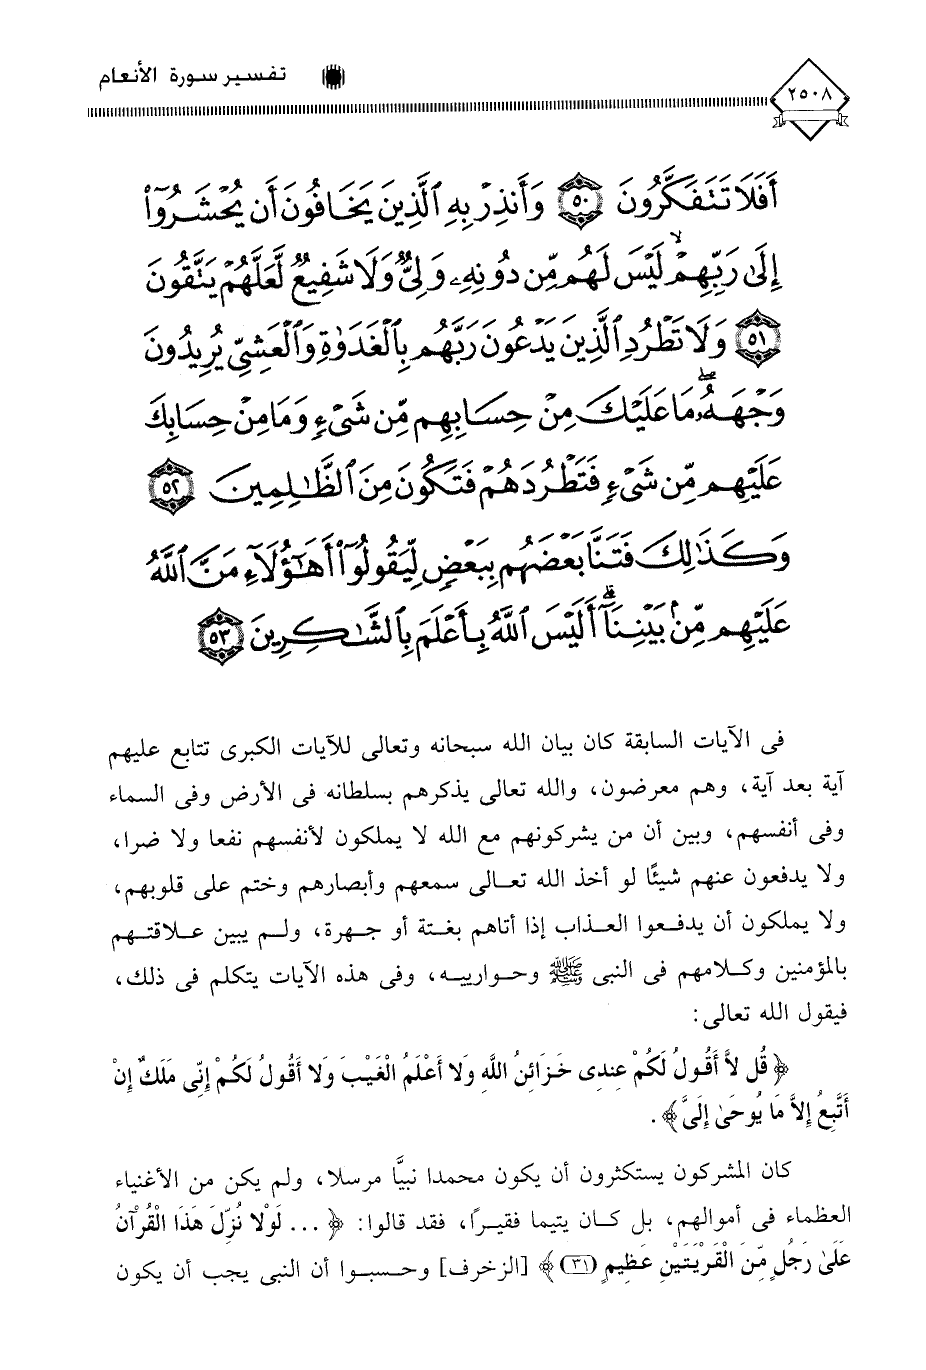 ٢٥٠٨ تفسير سورة الأنعام
أَفَلَا تَتَفَكَّرُونَ ٥٠ وَأَنذِرْ بِهِ ٱلَّذِينَ يَخَافُونَ أَن يُحْشَرُوٓا۟
إِلَىٰ رَبِّهِمْ ۙ لَيْسَ لَهُم مِّن دُونِهِۦ وَلِىٌّ وَلَا شَفِيعٌ لَّعَلَّهُمْ يَتَّقُونَ
٥١ وَلَا تَطْرُدِ ٱلَّذِينَ يَدْعُونَ رَبَّهُم بِٱلْغَدَوٰةِ وَٱلْعَشِىِّ يُرِيدُونَ
وَجْهَهُۥ ۖ مَا عَلَيْكَ مِنْ حِسَابِهِم مِّن شَىْءٍ وَمَا مِنْ حِسَابِكَ
عَلَيْهِم مِّن شَىْءٍ فَتَطْرُدَهُمْ فَتَكُونَ مِنَ ٱلظَّـٰلِمِينَ ٥٢
وَكَذَٰلِكَ فَتَنَّا بَعْضَهُم بِبَعْضٍ لِّيَقُولُوٓا۟ أَهَـٰٓؤُلَآءِ مَنَّ ٱللَّهُ
عَلَيْهِم مِّنۢ بَيْنِنَآ ۗ أَلَيْسَ ٱللَّهُ بِأَعْلَمَ بِٱلشَّـٰكِرِينَ ٥٣
فى الآيات السابقة كان بيان الله سبحانه وتعالى للآيات الكبرى تتابع عليهم
آية بعد آية، وهم معرضون، والله تعالى يذكرهم بسلطانه فى الأرض وفى السماء
وفى أنفسهم، وبين أن من يشركونهم مع الله لا يملكون لأنفسهم نفعا ولا ضرا،
ولا يدفعون عنهم شيئًا لو أخذ الله تعالى سمعهم وأبصارهم وختم على قلوبهم،
ولا يملكون أن يدفعوا العذاب إذا أتاهم بغتة أو جهرة، ولم يبين علاقتهم
بالمؤمنين وكلامهم فى النبى ﷺ وحوارييه، وفى هذه الآيات يتكلم فى ذلك،
فيقول الله تعالى:
﴿ قُل لاَّ أَقُولُ لَكُمْ عِندِى خَزَائِنُ اللَّهِ وَلا أَعْلَمُ الْغَيْبَ وَلا أَقُولُ لَكُمْ إِنِّى مَلَكٌ إِنْ
أَتَّبِعُ إِلاَّ مَا يُوحَىٰ إِلَىَّ ﴾ .
كان المشركون يستكثرون أن يكون محمدا نبيًّا مرسلا، ولم يكن من الأغنياء
العظماء فى أموالهم، بل كان يتيما فقيرًا، فقد قالوا: ﴿ ... لَوْلا نُزِّلَ هَذَا الْقُرْآنُ
عَلَىٰ رَجُلٍ مِّنَ الْقَرْيَتَيْنِ عَظِيمٍ (٣١) ﴾ [الزخرف] وحسبوا أن النبى يجب أن يكون